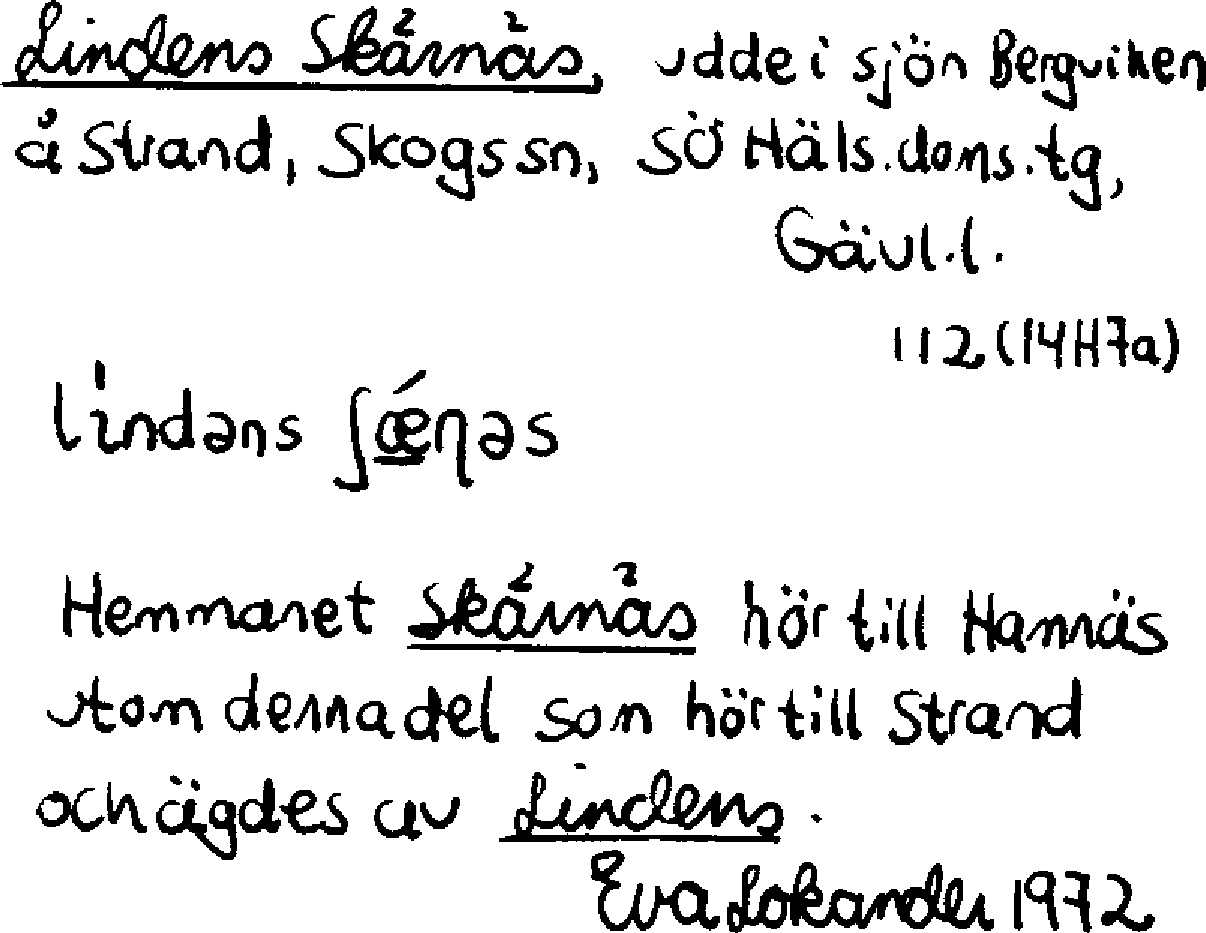 Lindens Skärnäs, udde i sjön Bergviken
å Strand, Skogs sn, SÖ Häls.doms.tg,
Gävl.l.
112 (14H7a)
lindəns ʃǽɳəs
Hemmanet Skärnäs hör till Hamnäs
utom denna del som hör till Strand
och ägdes av Lindens.
Eva Lokander 1972